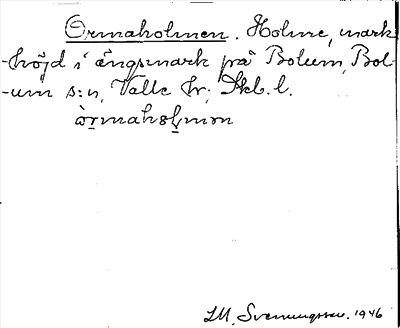 Ormaholmen. Holme, mark
-höjd i ängsmark på Bolum, Bol-
-um s:n, Valle hr, Skb. l.
òrmahɷlmən
LM. Svenungsson. 1946